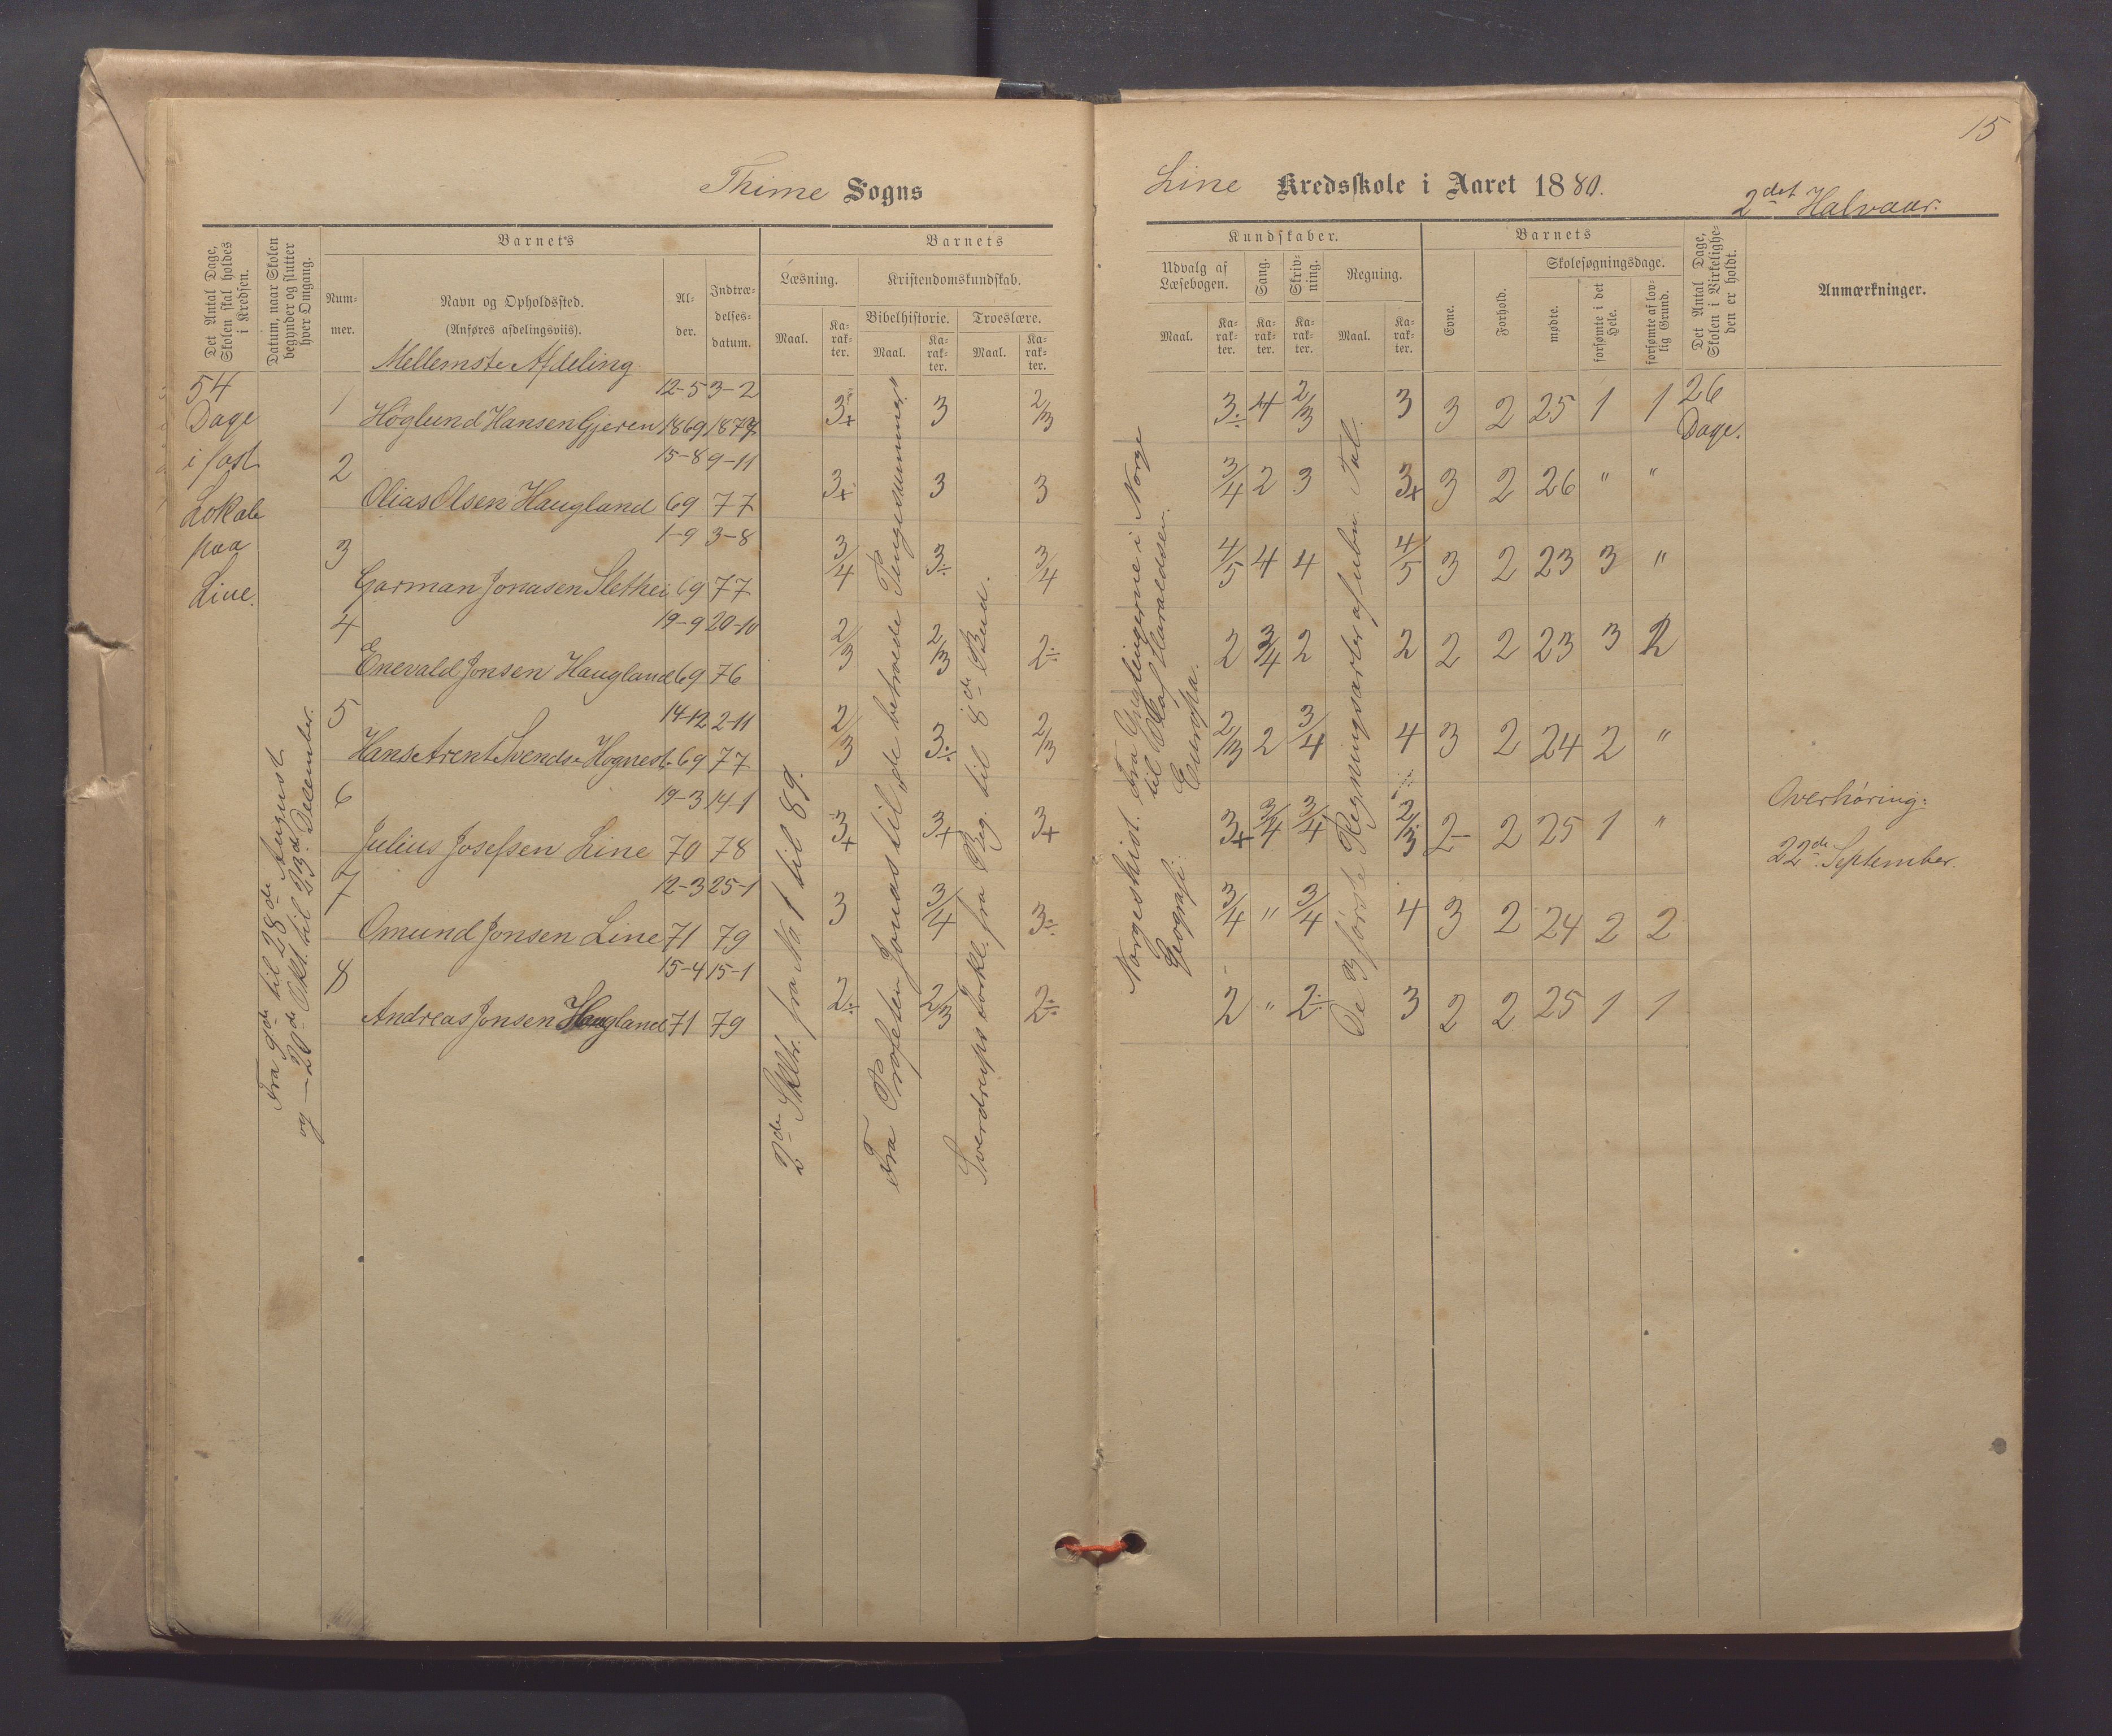 15
Thime Sogns
Line Kredsskole i Aaret 1880.
2det Halvaar.
Det Antal Dage, Skolen skal holdes i Kredsen.
Datum, naar Skolen begynder og slutter hver Omgang.
Barnets
Nummer.
Navn og Opholdssted.
(Anføres afdelingsviis).
Alder.
Indtrædelsesdatum.
Barnets
Læsning.
Maal.
Karakter.
Kristendomskundskab.
Bibelhistorie.
Maal.
Karakter.
Troeslære.
Maal.
Karakter.
Kundskaber.
Udvalg af Læsebogen.
Maal.
Karakter.
Sang.
Karakter.
Skrivning.
Karakter.
Regning.
Maal.
Karakter.
Barnets
Evne.
Forhold.
Skolesøgningsdage.
mødte.
forsømte i det Hele.
forsømte af lovlig Grund.
Det Antal Dage, Skolen i Virkeligheden er holdt.
Anmærkninger.
Mellemste Afdeling
54
Dage
i fast
Lokale
paa
Line.
Fra 9de til 28de August
og — 20de Okt. til 23d December.
1 Höglund Hansen Gjeren 12-5 1869 3-2 1877 3+ 3 2/3 3÷ 4 2/3 3 3 2 25 1 1 26 Dage.
2 Olias Olsen Haugland 15-8 69 9-11 77 3+ 3 3 3/4 2 3 3+ 3 2 26 " "
3 Garman Jonasen Slethei 1-9 69 3-8 77 3/4 3÷ 3/4 4/5 4 4 4/5 3 2 23 3 "
4 Enevald Jonsen Haugland 19-9 69 20-10 76 2/3 2/3 2÷ 2 3/4 2 2 2 2 23 3 2
5 Hans Arent Svends. Hognest. 14-12 69 2-11 77 2/3 3÷ 2/3 2/3 2 3/4 4 3 2 24 2 "
6 Julius Josefsen Line 19-3 70 14-1 78 3+ 3+ 3+ 3+ 3/4 3/4 2/3 2 2 25 1 "
7 Omund Jonsen Line 12-3 71 25-1 79 3 3/4 3÷ 3/4 " 3/4 4 3 2 24 2 2
8 Andreas Jonsen Haugland 15-4 71 15-1 79 2÷ 2/3 2÷ 2 " 2÷ 3 2 2 25 1 1
2de Skltr. fra No 1 til 89.
Fra Profeten Jonas til "de betroede
Sverdrups Forkl. fra Beg. til 8de Bud.
Norgeshist. Fra Ynglingerne i Norge
til Olaf Haraldssen.
Geografi: Europa.
De 3 første Regningsarter af ubn. Tal.
Overhøring:
22de September.